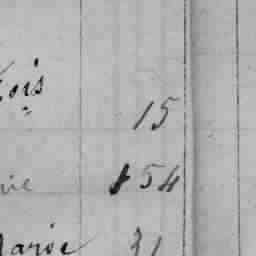 ois
15
ie 54
arie 31